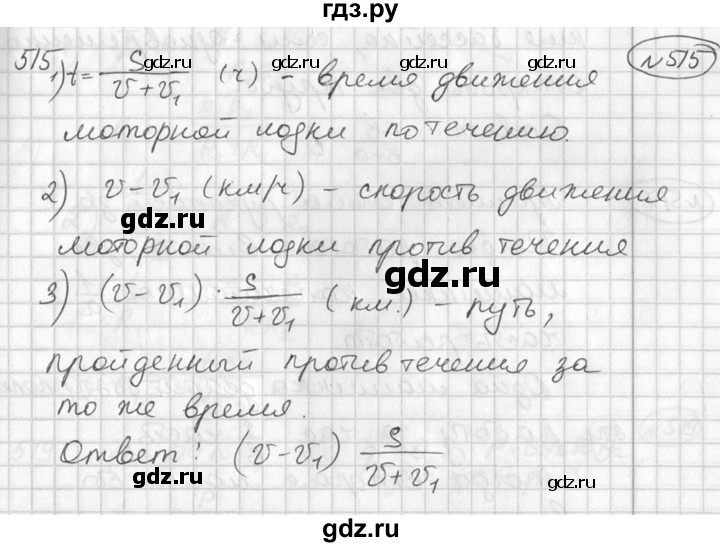 гдз.ру
515 № 515
1) t = S/(v + v₁) (ч) – время движения
gdz.ru gdz.ru gdz.ru
моторной лодки по течению.
2) v – v₁ (км/ч) – скорость движения
gdz.ru
моторной лодки против течения
gdz.ru
3) (v – v₁) · S/(v + v₁) (км.) – путь,
пройденный против течения за
то же время.
Ответ: (v – v₁) S/(v + v₁)
gdz.ru gdz.ru gdz.ru
gdz.ru